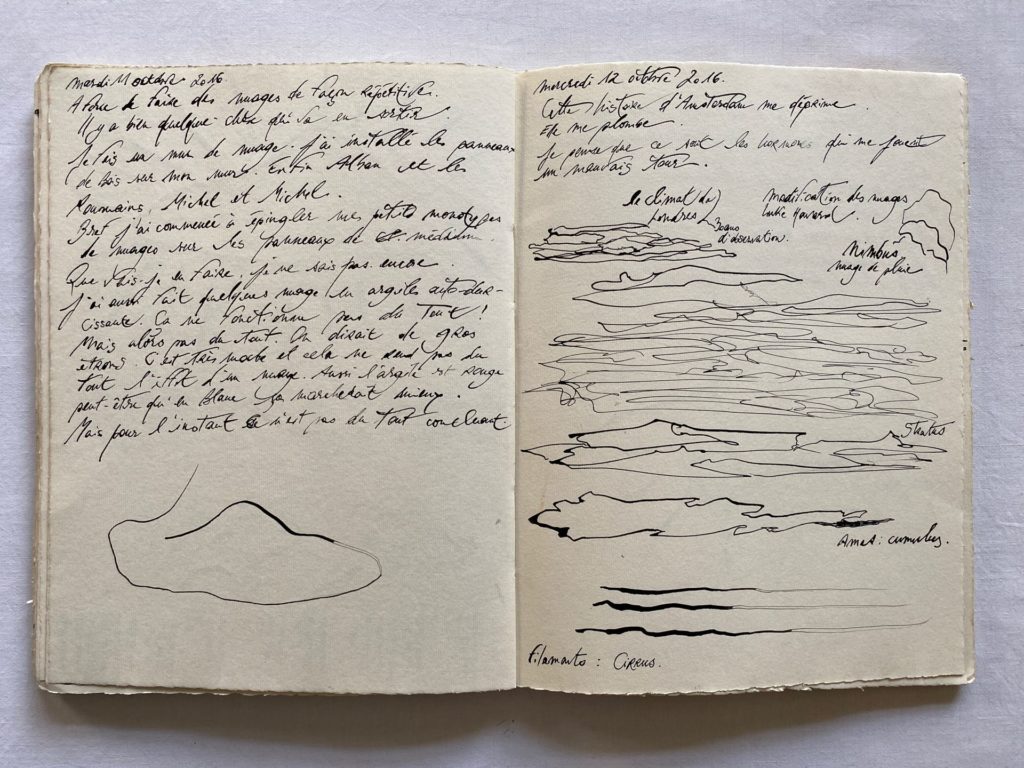 mardi 11 octobre 2016.
A force de faire des nuages de façon répétitive.
Il y a bien quelque chose qui va en sortir.
Je fais un mur de nuage. J'ai installé les panneaux
de bois sur mon mur. Enfin et les
Roumains, Michel et Michel.
Bref j'ai commencé à épingler mes petits monotypes
de nuages sur les panneaux de médium.
Que vais-je en faire, je ne sais pas encore.
J'ai aussi fait quelques nuage en argiles auto-dur-
cissante. Ca ne fonctionne pas du Tout !
Mais alors pas du tout. On dirait de gros
étrons. C'est très moche et cela ne rend pas du
Tout l'effet d'un nuage. Aussi l'argile est rouge
peut-être qu'en blanc ça marcherait mieux.
Mais pour l'instant ce n'est pas du Tout concluant.
mercredi 12 octobre 2016.
Cette histoire d'Amsterdam me déprime.
Elle me plombe.
Je pense que ce sont les hormones qui me jouent
un mauvais Tour.
le climat de
Londres
30 ans
d'observation.
modification des nuages
Luke Howard.
Nimbus
nuage de pluie
Stratus
Amas : cumulus.
Filaments : Cirrus.